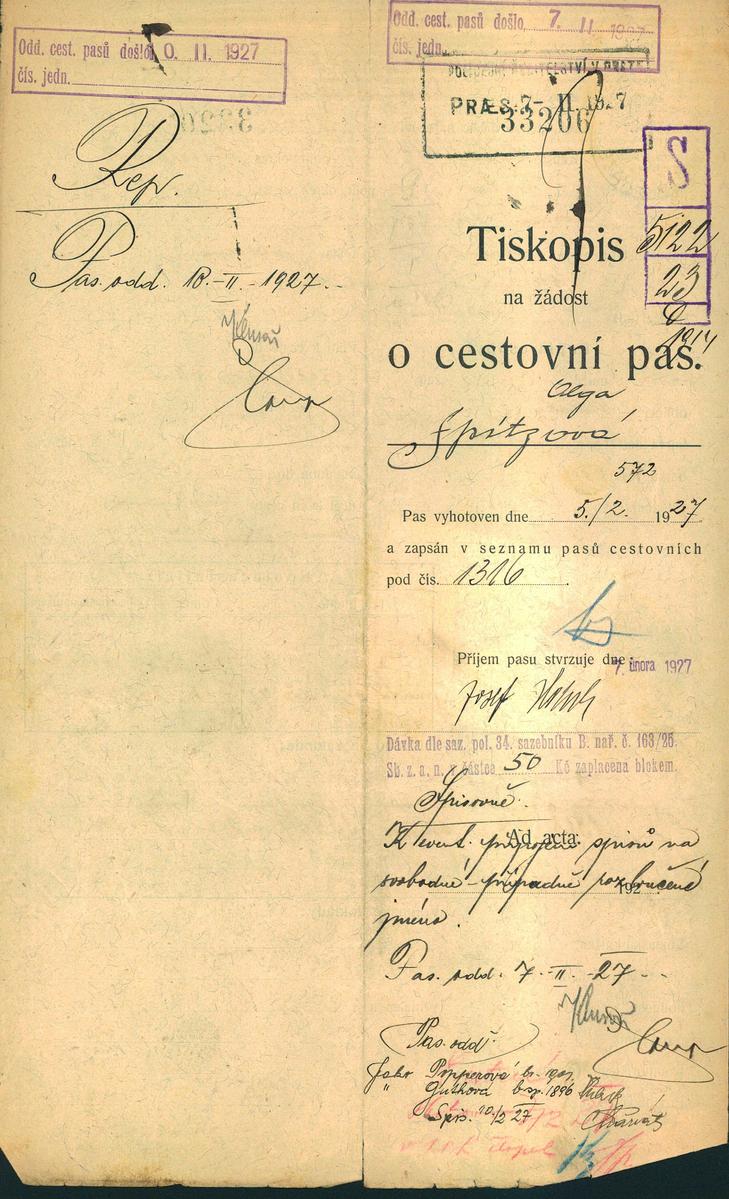 Odd. cest. pasů došlo 10. II. 1927
čís. jedn.
Rep.
Pas. odd. 10.-II.-1927.
Odd. cest. pasů došlo 7. II 1927
čís. jedn.
PRÆS. 7- II. 1927
33206
S
5122
23
1914
Tiskopis
na žádost
o cestovní pas.
Olga
Spitzová
572
Pas vyhotoven dne 5./2. 1927
a zapsán v seznamu pasů cestovních
pod čís. 1316.
Příjem pasu stvrzuje dne 7. února 1927
Josef
Dávka dle saz. pol. 34. sazebníku B. nař. č. 163/26.
Sb. z. a. n. v částce 50 Kč zaplacena blokem.
Spisovně.
Ad acta.
K event. připojení spisů na
svobodné - případně rozloučené
192
jméno.
Pas. odd. 7.-II.-27.
Pas. odd.
Jako Popperová
" Gutková 1896
Spis. 10/2 27